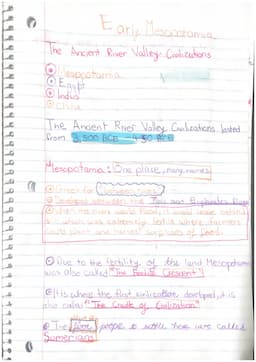 Early Mesopotamia
The Ancient River Valley Civilizations
Mesopotamia
Egypt
Indus
China
The Ancient River Valley Civilizations lasted
from 3,500 BCE - 450 BCE
Mesopotamia: One place, many names
Greek for
Developed between the Tigris and Euphrates Rivers
When the rivers would flood, it would leave behind
silt which was extremely fertile where farmers
could plant and harvest surpluses of food.
Due to the fertility of the land Mesopotamia
was also called "The Fertile Crescent"
It is where the first civilization developed, it is
also called "The Cradle of Civilization"
The first people to settle there were called
Sumerians